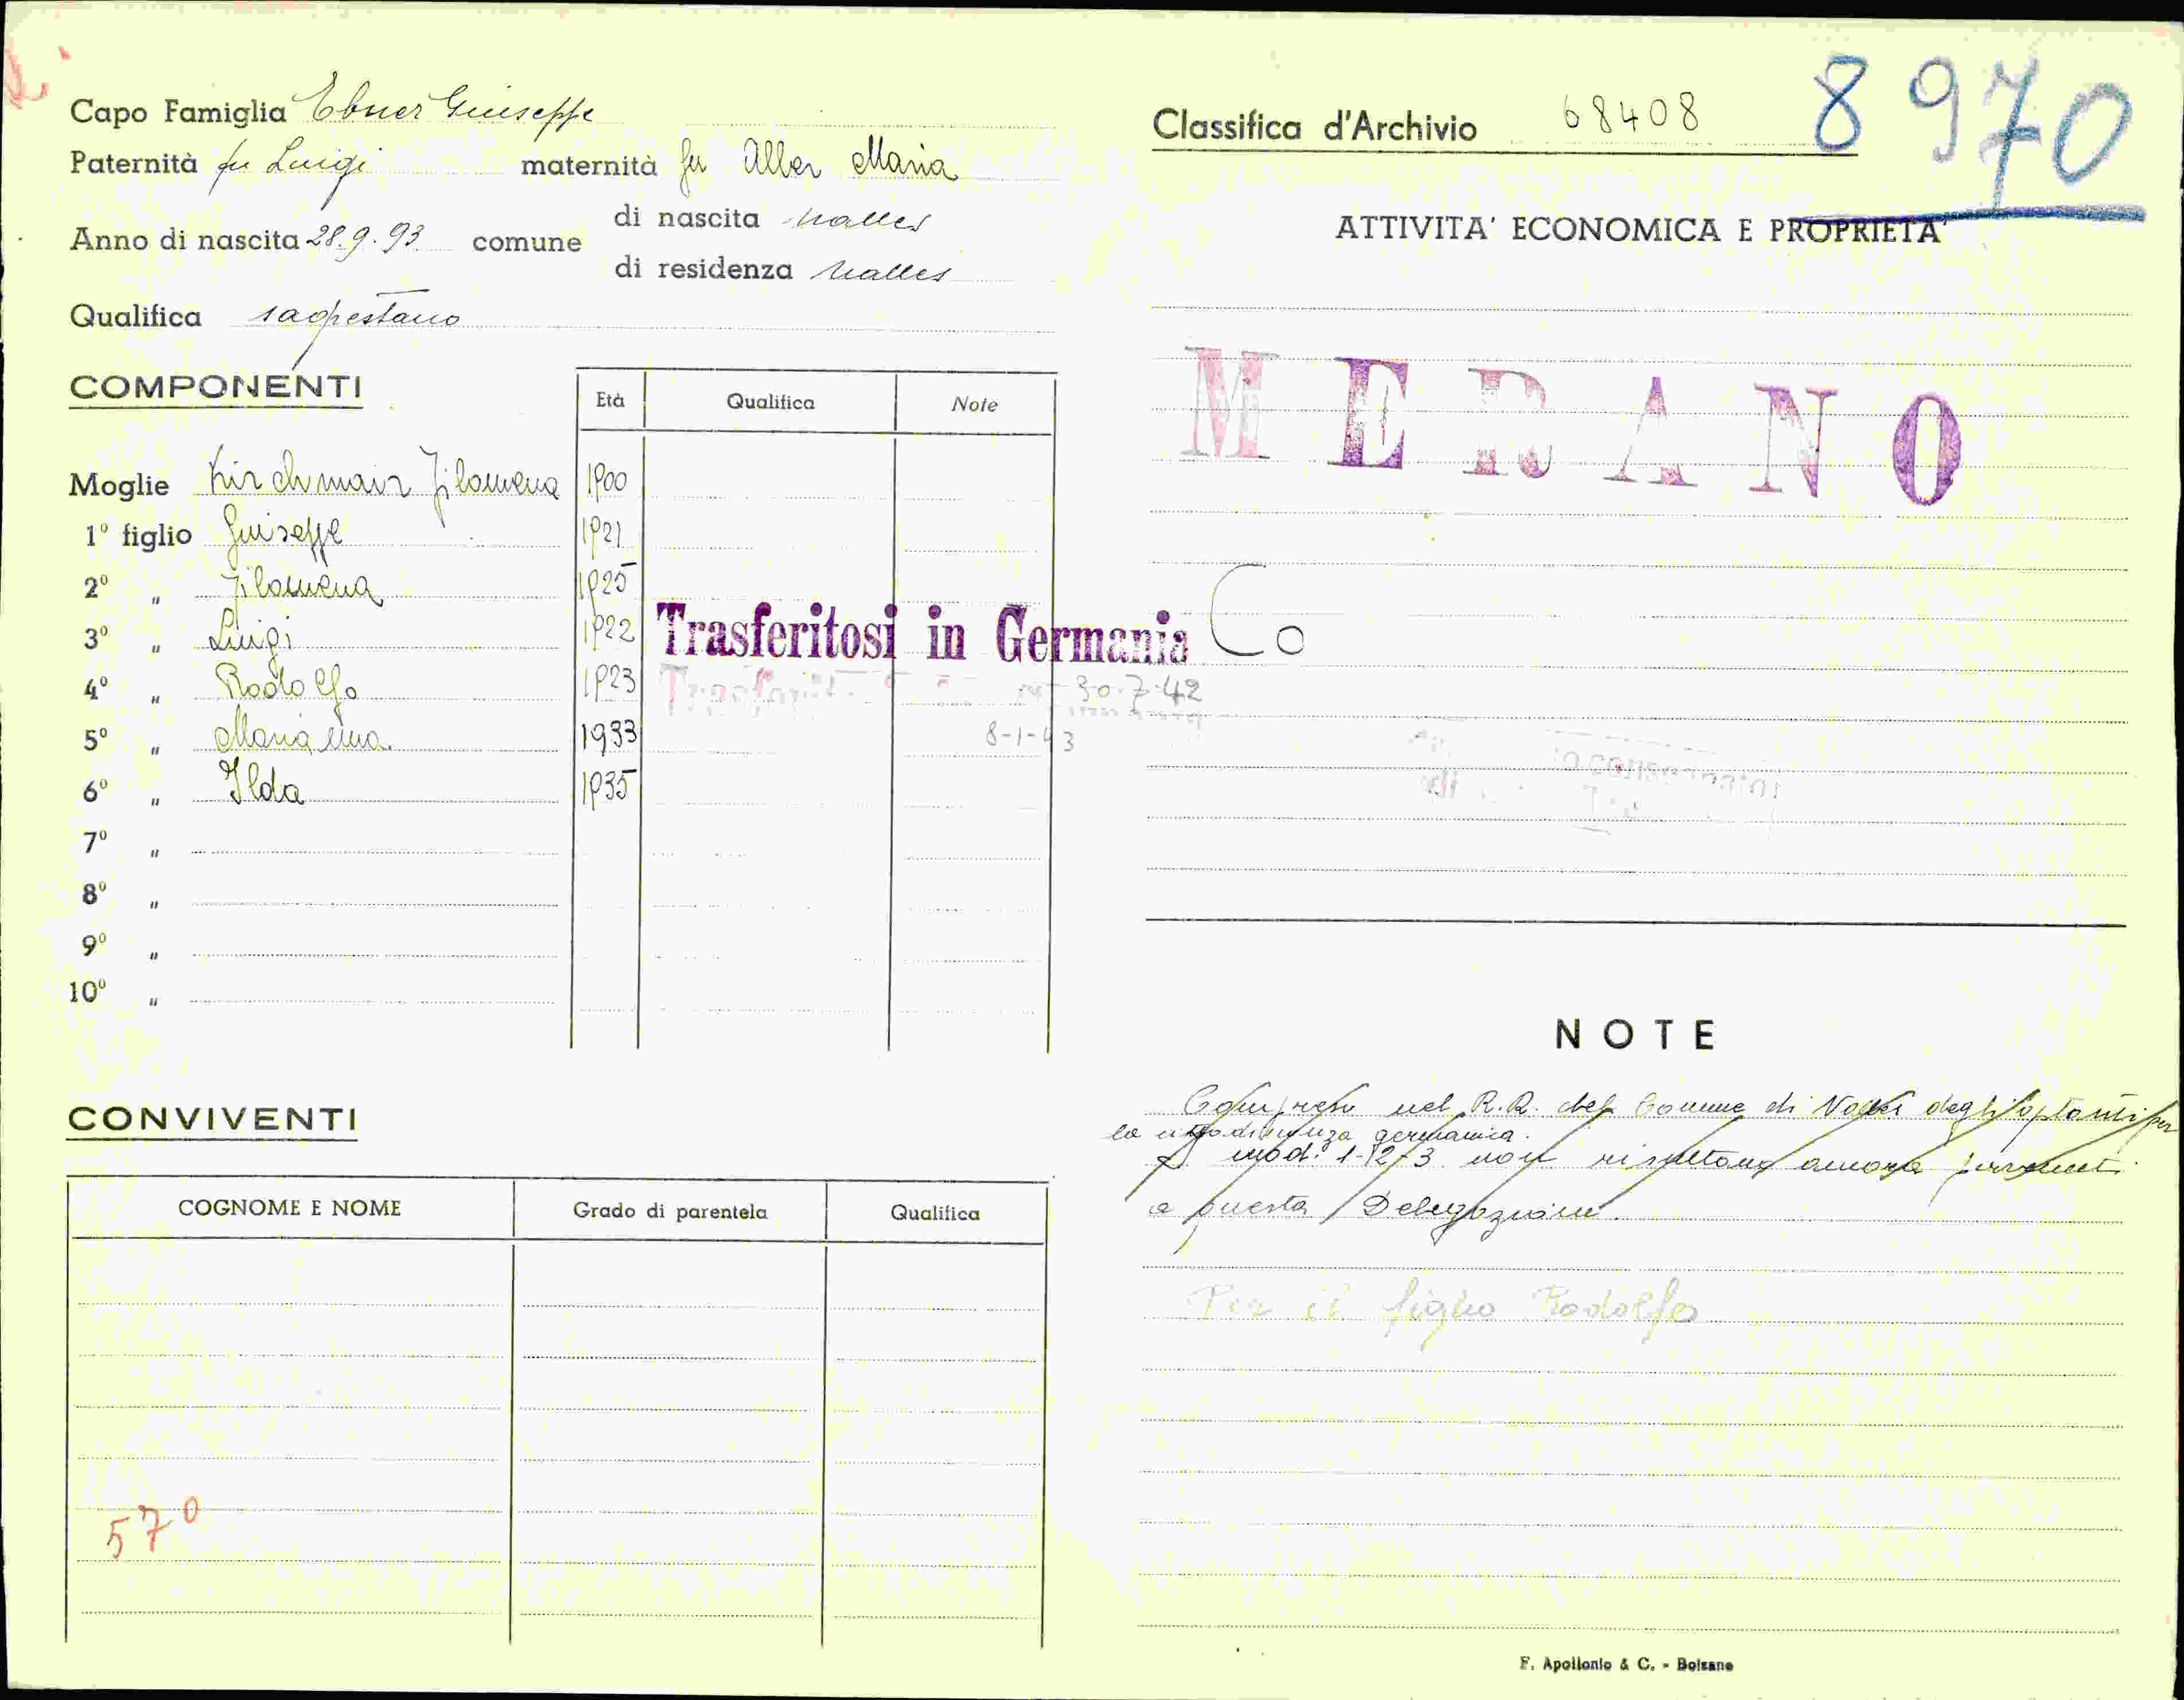 Capo Famiglia Ebner Giuseppe
Paternità fu Luigi maternità fu Alber Maria
Anno di nascita 28.9.93 comune di nascita Malles
di residenza Malles
Qualifica sagrestano
COMPONENTI
Età Qualifica Note
Moglie Kirchmair Filomena 1900
1° figlio Giuseppe 1921
2° " Filomena 1925
3° " Luigi 1922
4° " Rodolfo 1923
5° " Maria 1933
6° " Ilda 1935
7° "
8° "
9° "
10° "
Trasferitosi in Germania
30-7-42
8-1-43
CONVIVENTI
COGNOME E NOME Grado di parentela Qualifica
570
Classifica d'Archivio 68408
8970
ATTIVITA' ECONOMICA E PROPRIETA'
MERANO
Co
NOTE
Compreso nel R.R. del Comune di degli optanti per
la cittadinanza germanica.
I mod. 1-2-3 non risultano ancora pervenuti
a questa Delegazione.
Per il figlio Rodolfo
F. Apollonio & C. - Bolzano